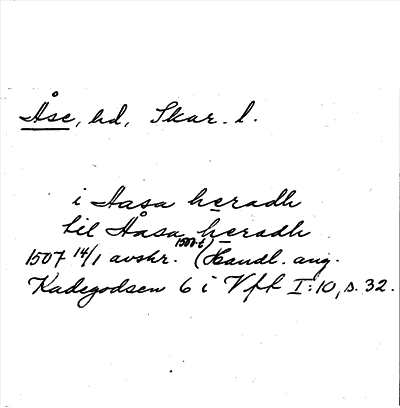 Åse, hd, Skar. l.
i Aasa heradh
til Åsasa heradh
1507 14/1 avskr. 1500-t) (Handl. ang.
Kadegodsen 6 i Vfl I:10, s. 32.